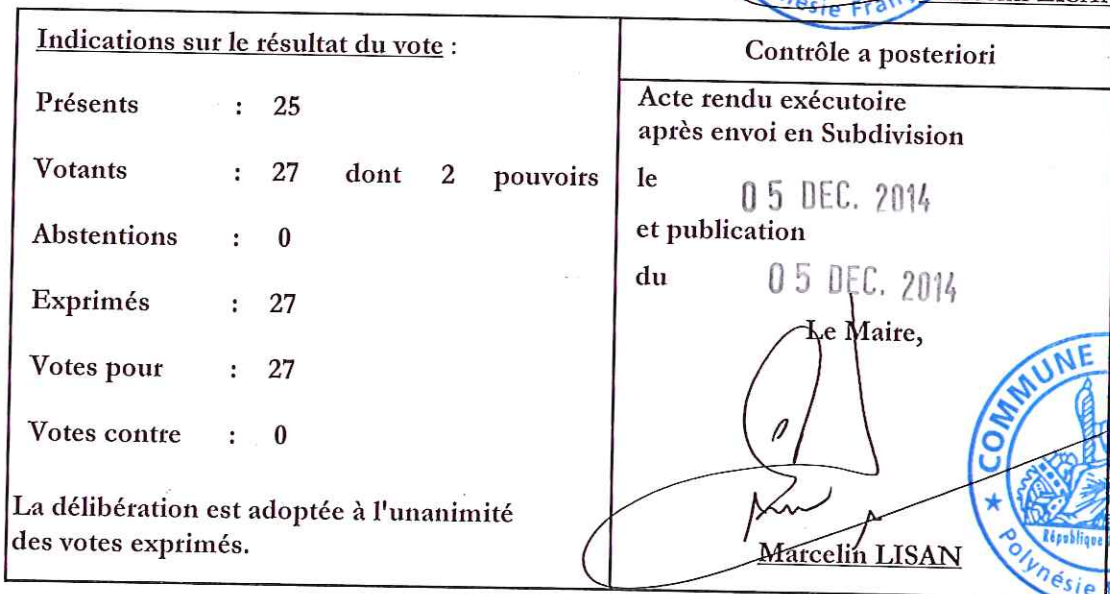 ésie Fran
LISAN
Indications sur le résultat du vote :
Présents : 25
Votants : 27 dont 2 pouvoirs
Abstentions : 0
Exprimés : 27
Votes pour : 27
Votes contre : 0
La délibération est adoptée à l'unanimité
des votes exprimés.
Contrôle a posteriori
Acte rendu exécutoire
après envoi en Subdivision
le 05 DEC. 2014
et publication
du 05 DEC. 2014
Le Maire,
Marcelin LISAN
★ COMMUNE
République
Polynésie